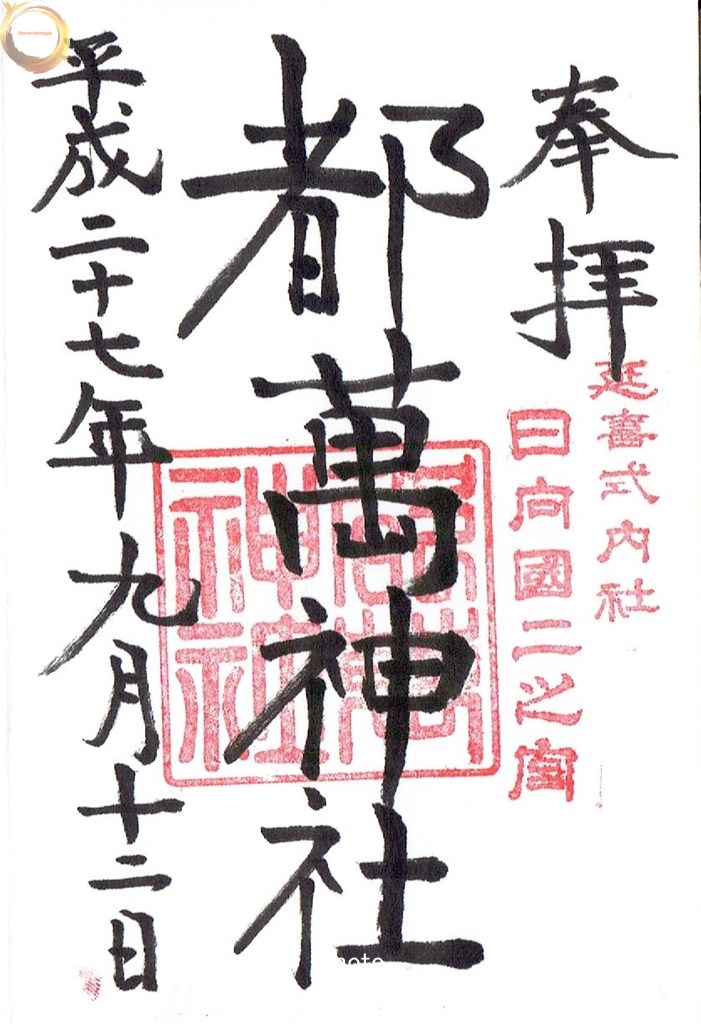 奉拝
延喜式内社
日向國二之宮
都萬神社
都萬
神社
平成二十七年九月十二日
Shrine Heritager